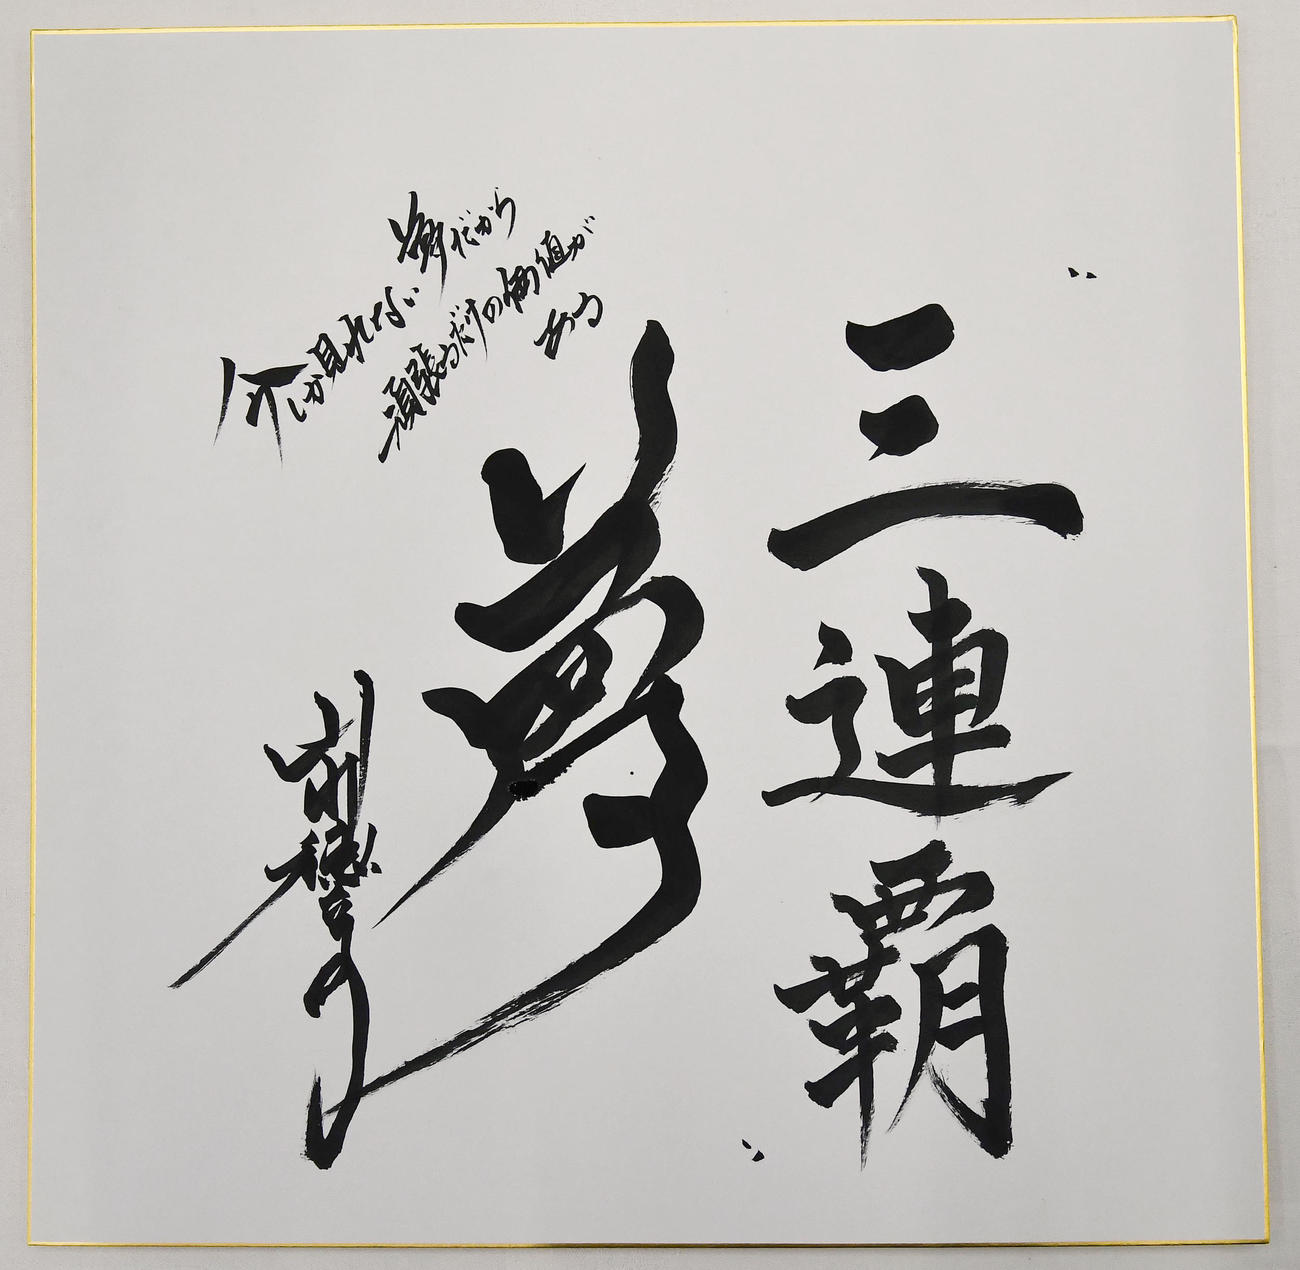 〝三連覇〟
夢
今しか見れない夢だから
頑張るだけの価値が
ある